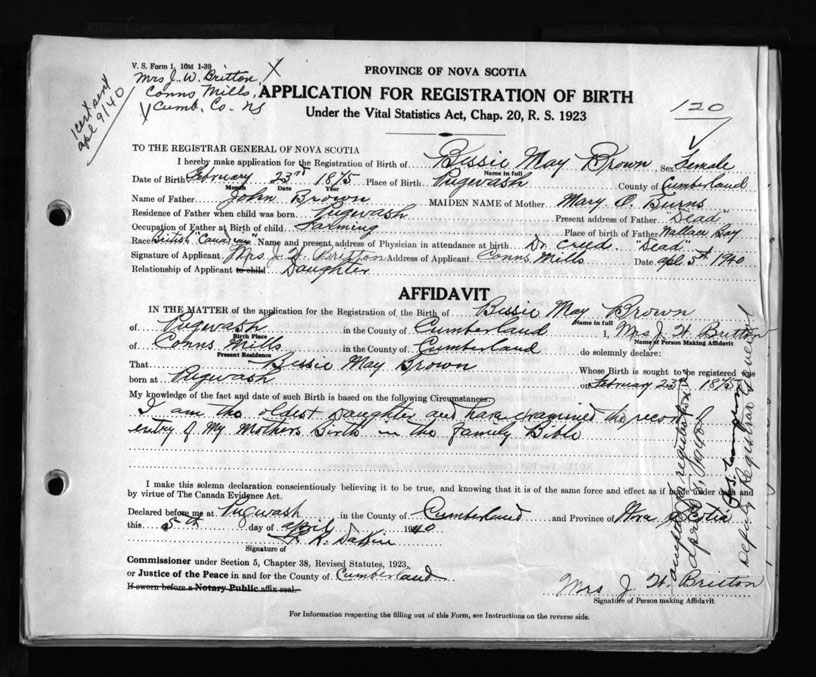 V. S. Form 1, 10M 1-39
Mrs J. W. Britton,
Conns Mills,
Cumb. Co. NS
1 cert sent
apl 9/40
PROVINCE OF NOVA SCOTIA
APPLICATION FOR REGISTRATION OF BIRTH
Under the Vital Statistics Act, Chap. 20, R. S. 1923
120
TO THE REGISTRAR GENERAL OF NOVA SCOTIA
I hereby make application for the Registration of Birth of Bessie May Brown, Sex Female
Name in full
Date of Birth February 23rd 1875 Place of Birth Pugwash County of Cumberland
Month Date Year
Name of Father John Brown MAIDEN NAME of Mother Mary O. Burns
Residence of Father when child was born Pugwash Present address of Father "Dead"
Occupation of Father at Birth of Child Farming Place of birth of Father Wallace Bay
Race British "Canadian" Name and present address of Physician in attendance at birth Dr. Creed "Dead"
Signature of Applicant Mrs. J. W. Britton Address of Applicant Conns Mills Date apl 5th 1940
Relationship of Applicant to child Daughter
AFFIDAVIT
IN THE MATTER of the application for the Registration of the Birth of Bessie May Brown
Name in full
of Pugwash in the County of Cumberland I, Mrs J. W. Britton
Birth Place
Name of Person Making Affidavit
of Conns Mills in the County of Cumberland do solemnly declare:
Present Residence
That Bessie May Brown Whose Birth is sought to be registered was
born at Pugwash on February 23rd 1875
My knowledge of the fact and date of such Birth is based on the following Circumstances:
I am the oldest Daughter and have examined the record
entry of My Mothers Birth in the Family Bible
I make this solemn declaration conscientiously believing it to be true, and knowing that it is of the same force and effect as if made under oath and
by virtue of The Canada Evidence Act.
Declared before me at Pugwash in the County of Cumberland and Province of Nova Scotia
this 5th day of April 1940
Signature of
Commissioner under Section 5, Chapter 38, Revised Statutes, 1923,
or Justice of the Peace in and for the County of Cumberland
If sworn before a Notary Public affix seal.
Mrs J. W. Britton
Signature of Person making Affidavit
For Information respecting the filling out of this Form, see Instructions on the reverse side.
Deputy Registrar General